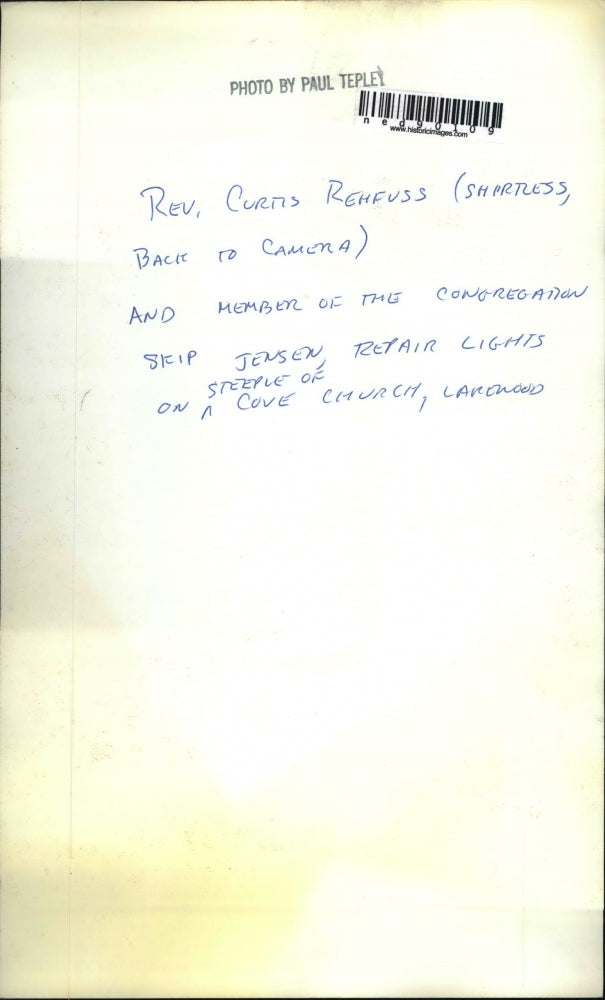 PHOTO BY PAUL TEPLEY
ned90109
www.historicimages.com
REV. CURTIS REHFUSS (SHIRTLESS,
BACK TO CAMERA)
AND MEMBER OF THE CONGREGATION
SKIP JENSEN, REPAIR LIGHTS
STEEPLE OF
ON ^ COVE CHURCH, LAKEWOOD